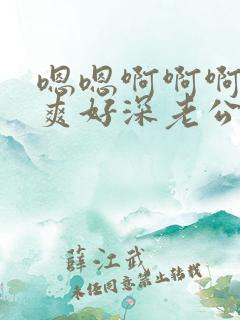 嗯嗯啊啊啊
爽好深老公
薛江武
未经同意禁止转载